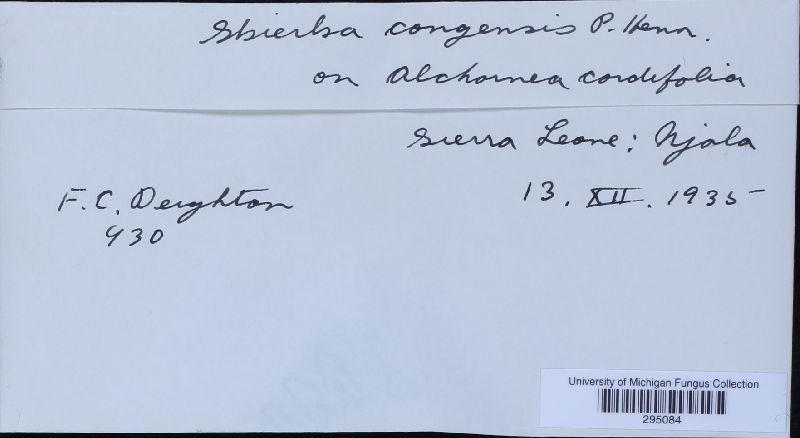 congensis P. Henn.
on Alchornea cordifolia
Sierra Leone: Njala
13. XII. 1935
F. C. Deighton
930
University of Michigan Fungus Collection
295084